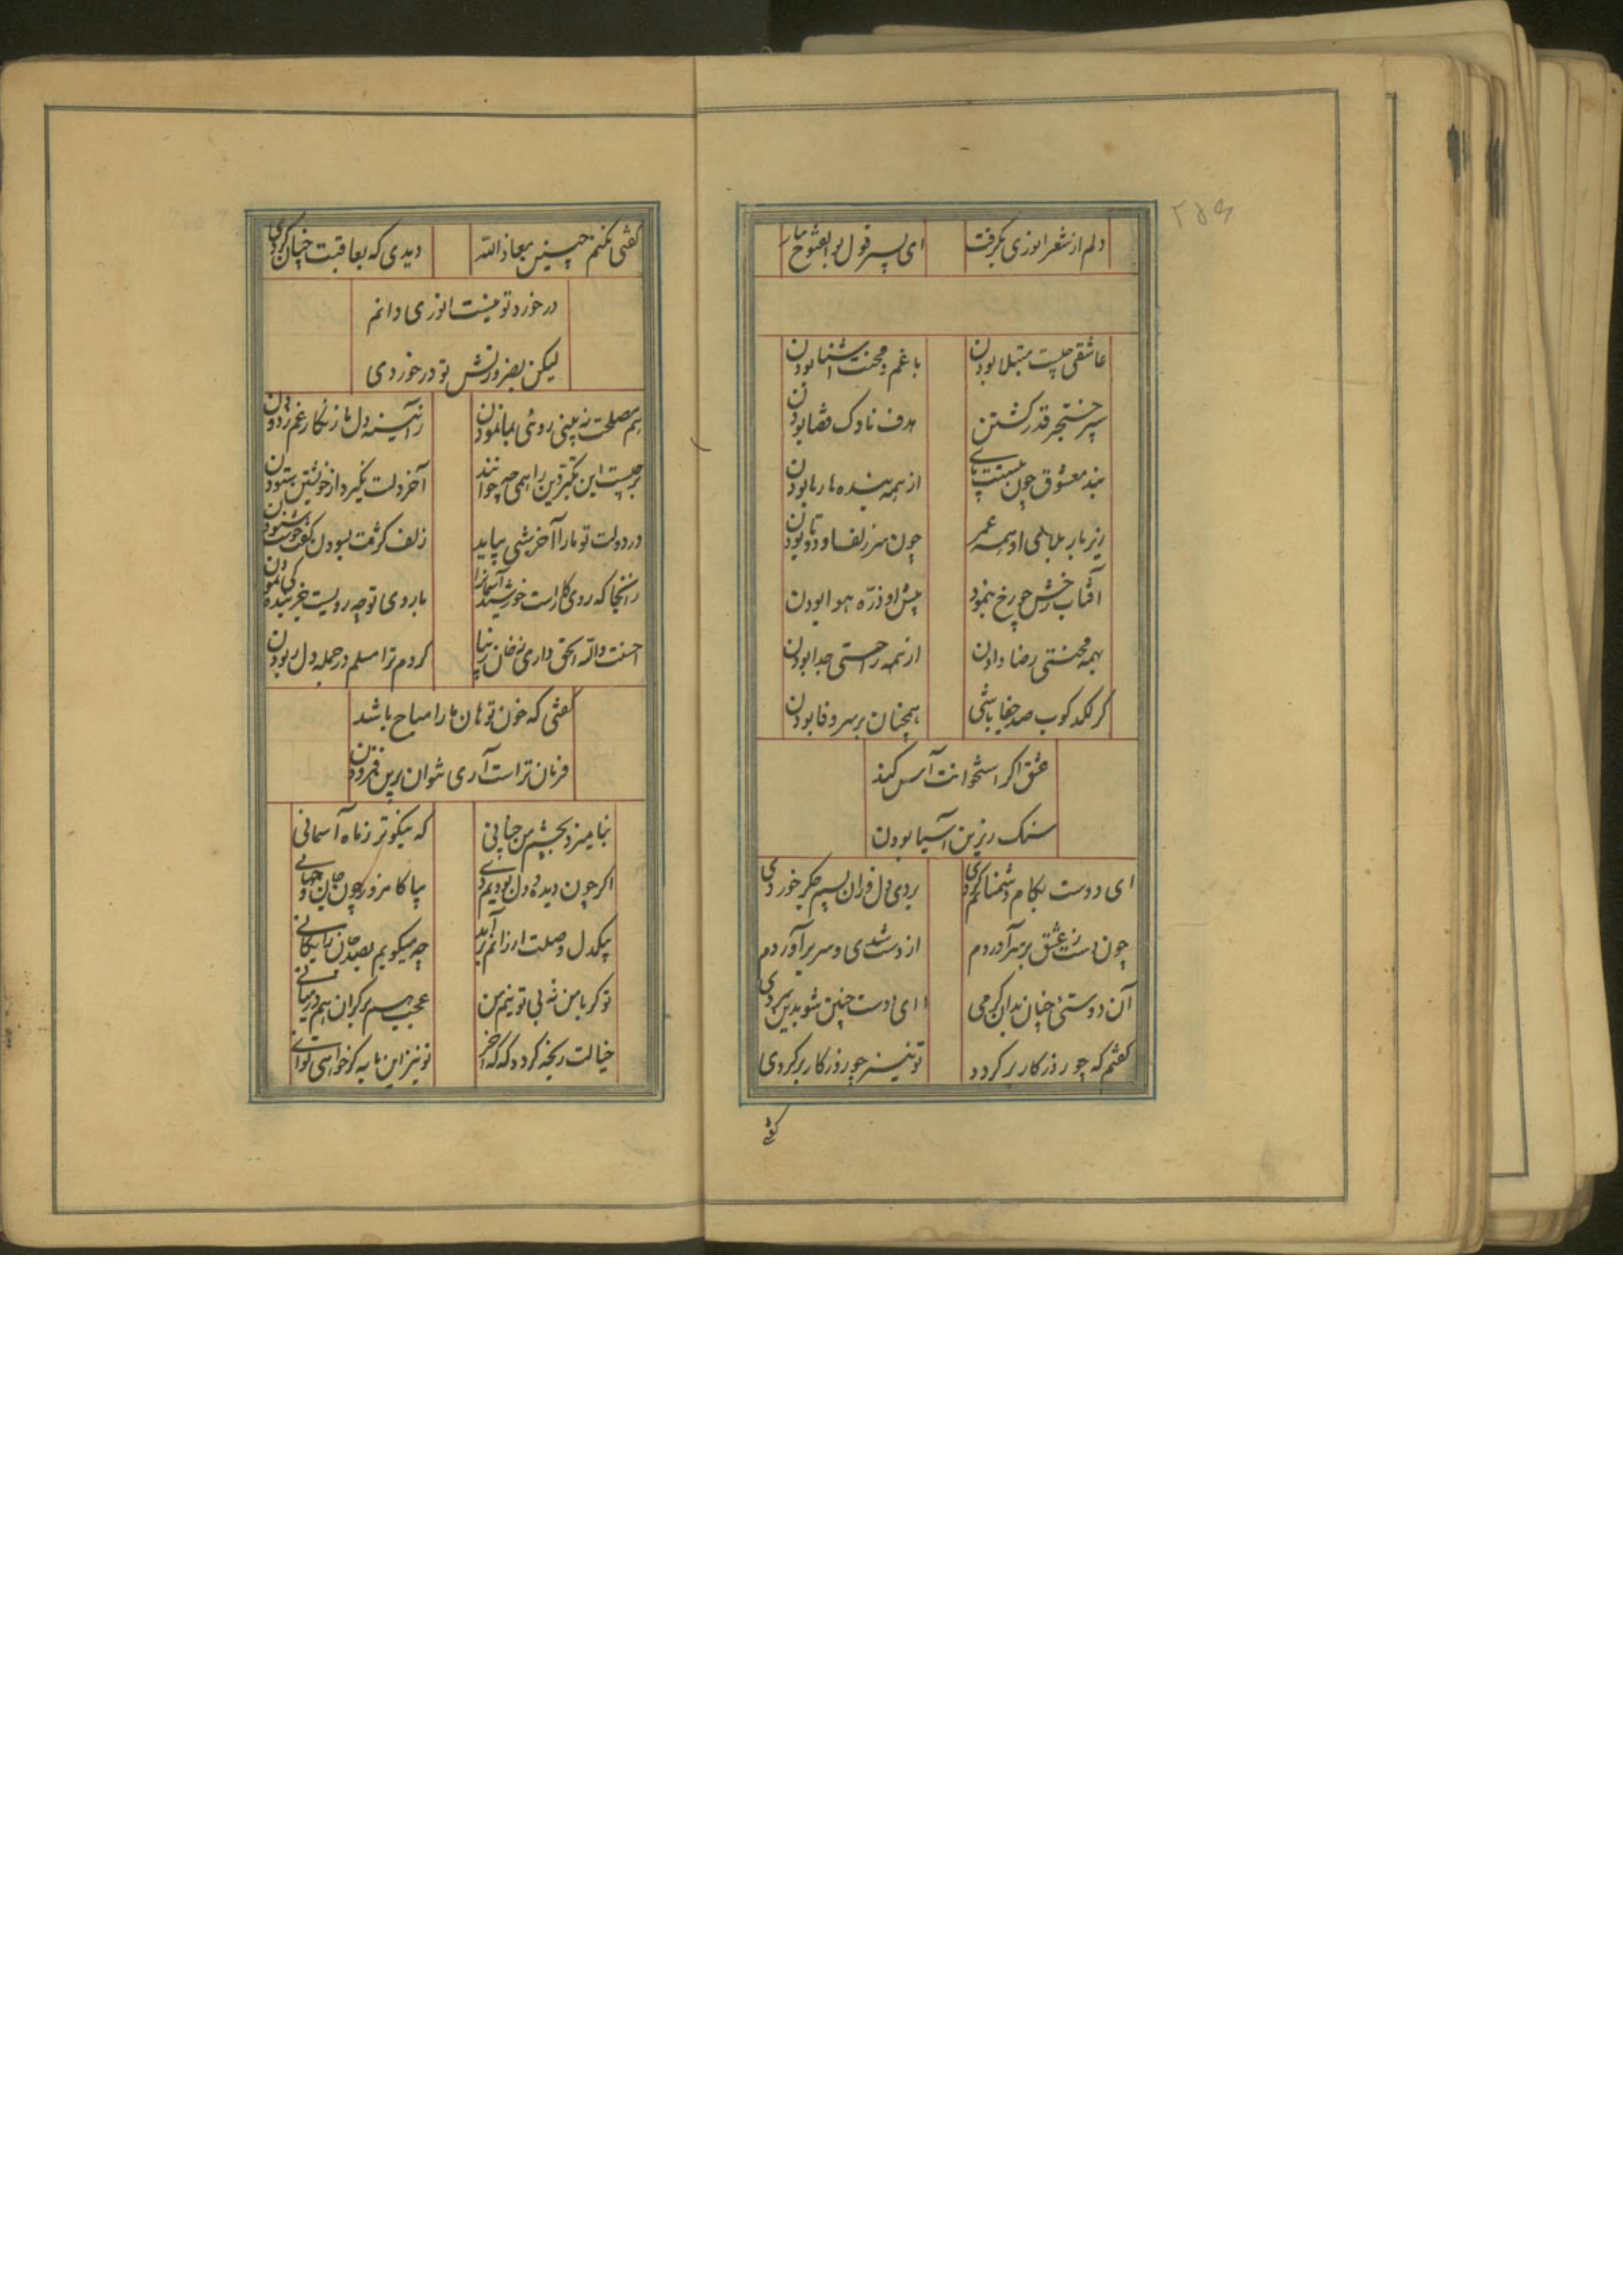 ۲۵۹
دلم از شعر انوری بگرفت ای پسر قول بوالفتوح بیار
عاشقی چیست مبتلا بودن با غم و محنت آشنا بودن
سپر خنجر قدر گشتن هدف ناوک قضا بودن
بند معشوق چون ببستت پای از همه بندها رها بودن
زیر بار بلای او همه عمر چون سر زلف او دوتا بودن
آفتاب رخش چو رخ بنمود پیش او ذره هوا بودن
بهمه محنتی رضا دادن از همه راحتی جدا بودن
گر لگدکوب صد جفا باشی همچنان بر سر وفا بودن
عشق اگر استخوانت آس کند
سنک زیرین آسیا بودن
ای دوست بکام دشمنانم کردی بردی دل و زان بسم جگر خوردی
چون دست ز عشق بر سر آوردم از دست شدی و سر برآوردم
آن دوستئی چنان بدان گرمی ای دوست چنین شود بدین سردی
گفتم که چو روزگار برگردد تو نیز چو روزگار برگردی
گفتی
گفتی نکنم چنین معاذ الله دیدی که بعاقبت چنان کردی
در خورد تو نیست انوری دانم
لیکن بضرورتش تو در خوردی
هم مصلحت نبینی روئی بما نمودن زآئینه دل ما زنگار غم زدودن
آخر دلت نگیرد از خویشتن ستودن
در دولت تو ما را آخر شبی بباید زلف کژت بسودن
زانجا که روی کار است خورشید آسمانرا با روی تو چه رویست جز بندگی نمودن
کردم ترا مسلم در جمله دل ربودن
گفتی که خون تو هان ما را مباح باشد
فرمان تراست آری نتوان برین فزودن
بنامیزد بچشم من چنانی که نیکوتر ز ماه آسمانی
اگر چون دیده و دل بودیم دی بیا کامروز چون جان و جهانی
بیکدل وصلت ارزانم برآمد چه میگویم بصد جان رایگانی
تو گر با من نه بی تو نیم من عجب هم بر کران هم در میانی
خیالت رنجه گردد گه گه آخر تو نیز این مایه گر خواهی توانی